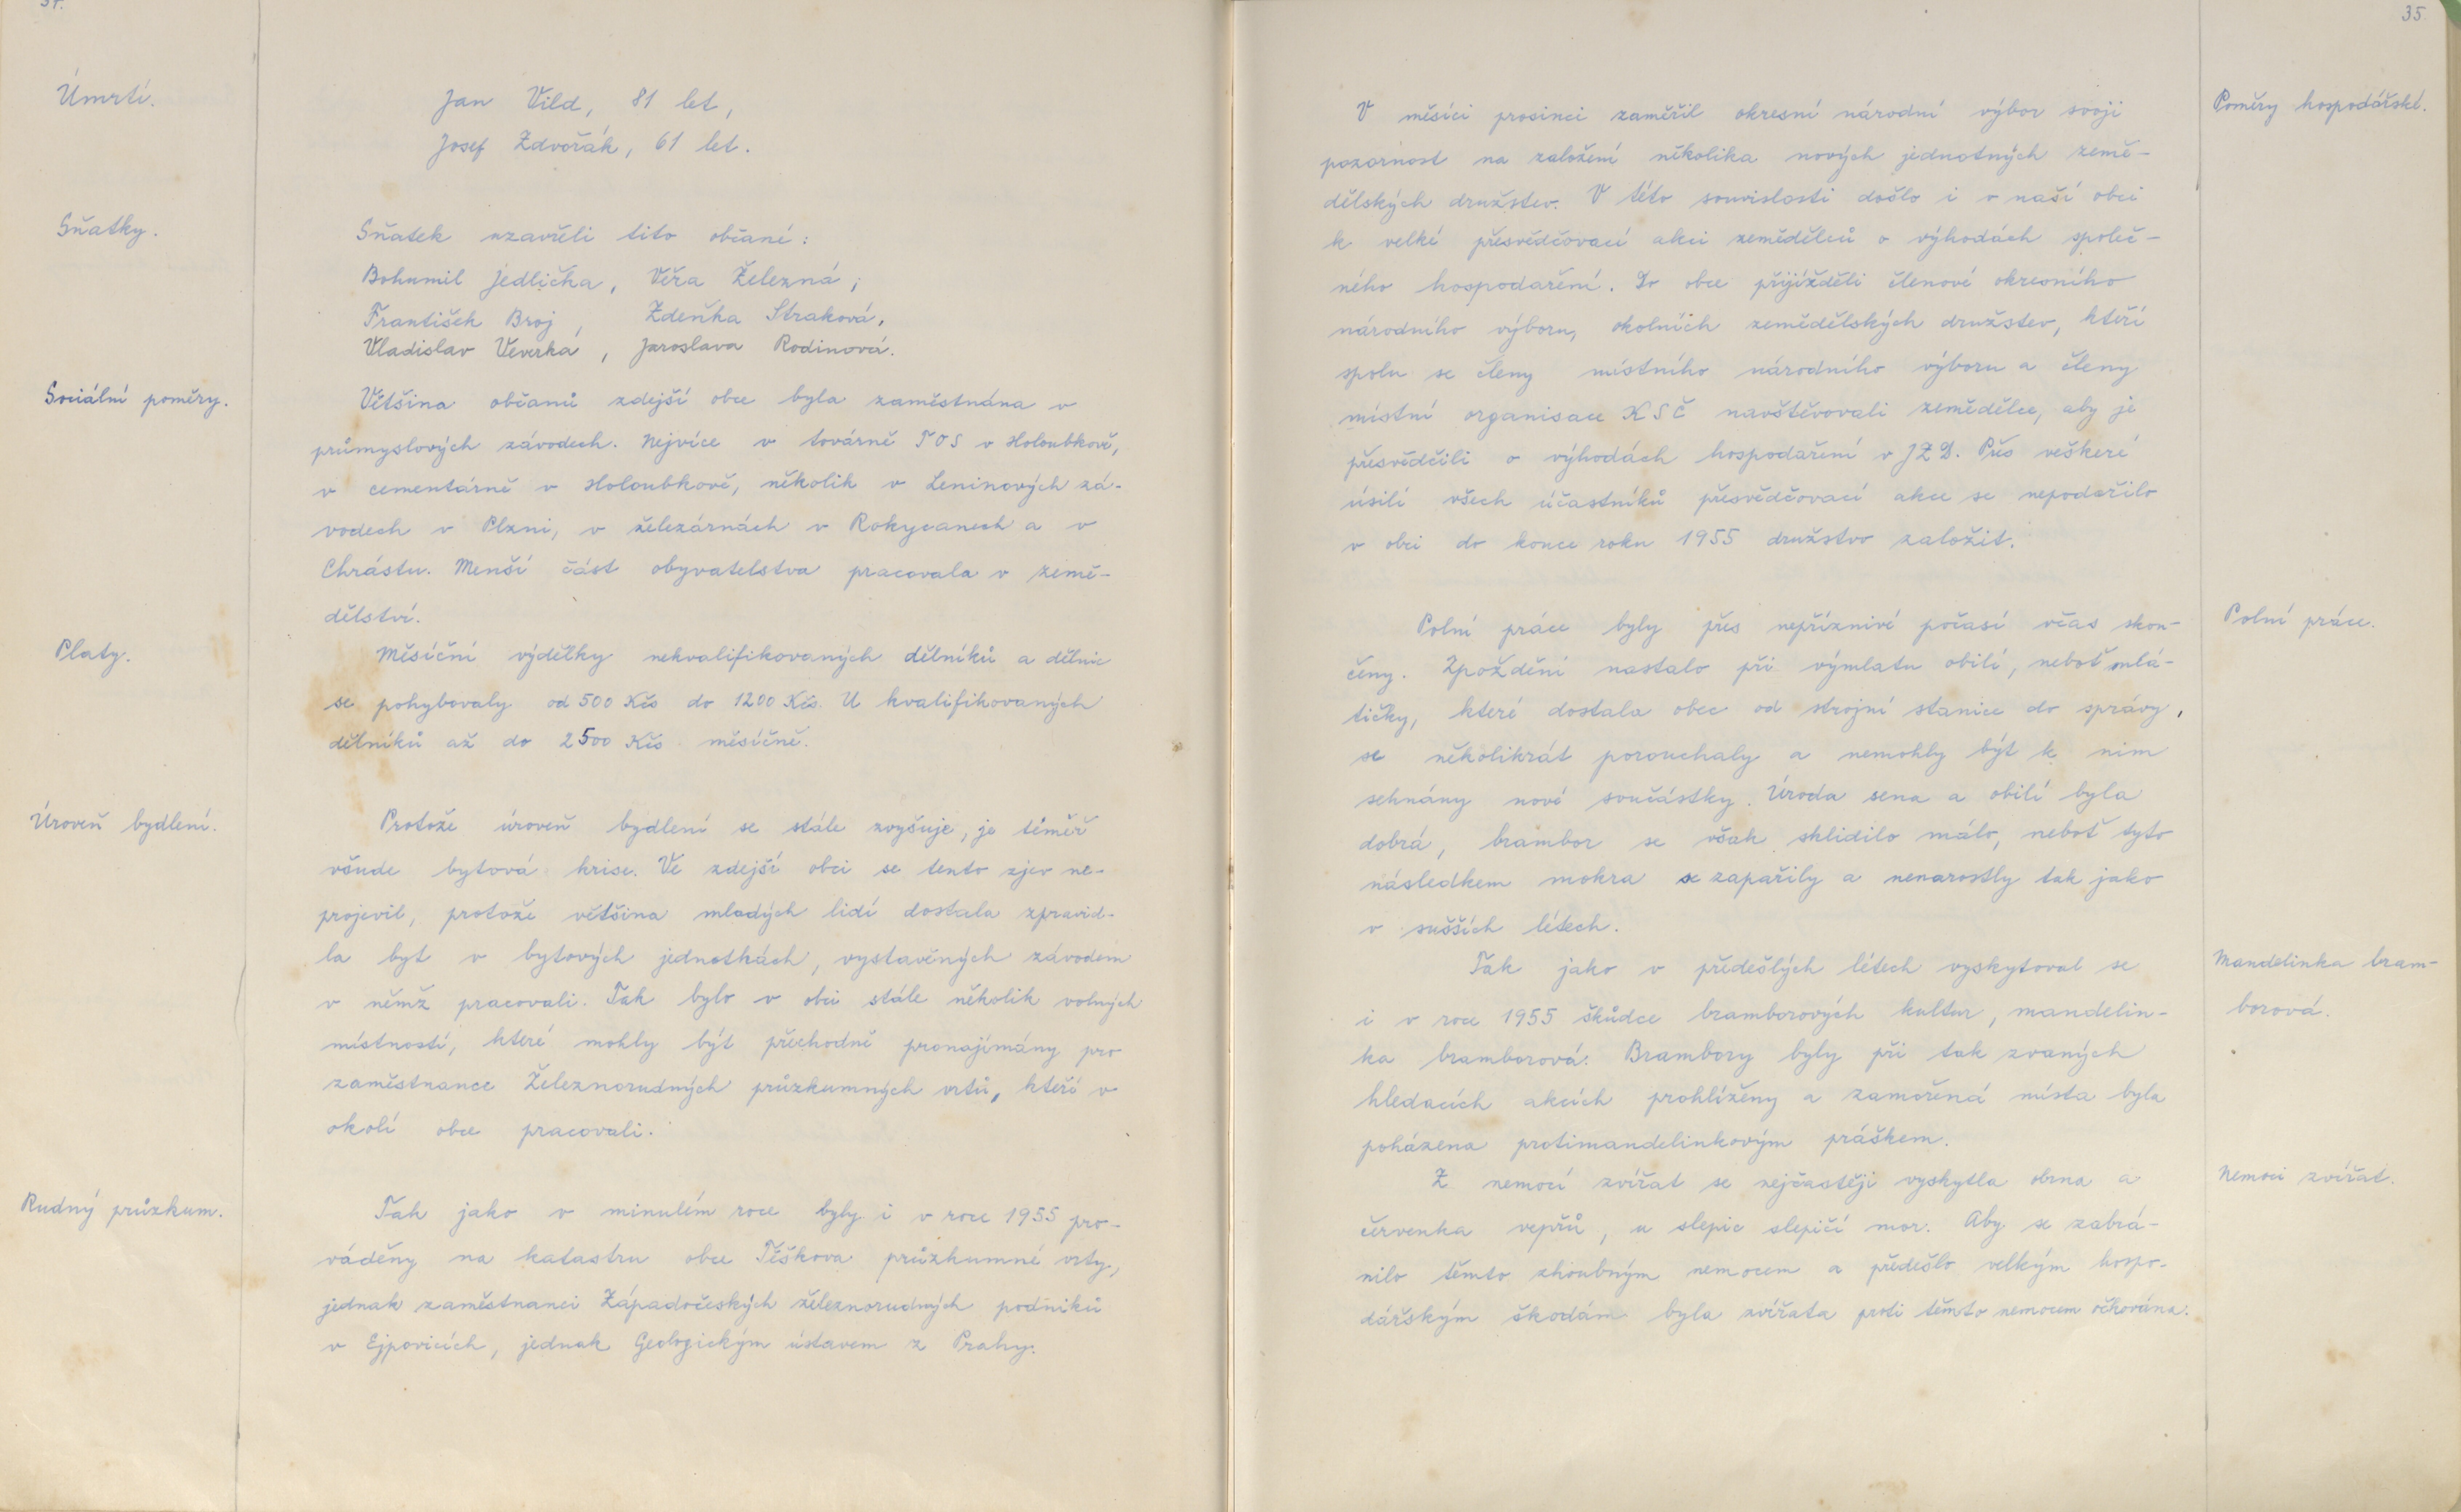 34.
Úmrtí.
Jan Vild, 81 let,
Josef Zdvořák, 61 let.
Sňatky.
Sňatek uzavřeli tito občané:
Bohumil Jedlička, Věra Železná;
František Broj, Zdeňka Straková,
Vladislav Veverka, Jaroslava Rodinová.
Sociální poměry.
Většina občanů zdejší obce byla zaměstnána v
průmyslových závodech. Nejvíce v továrně TOS v Holoubkově,
v cementárně v Holoubkově, několik v Leninových zá-
vodech v Plzni, v železárnách v Rokycanech a v
Chrástu. Menší část obyvatelstva pracovala v země-
dělství.
Platy.
Měsíční výdělky nekvalifikovaných dělníků a dělnic
se pohybovaly od 500 Kčs do 1200 Kčs. U kvalifikovaných
dělníků až do 2500 Kčs měsíčně.
Úroveň bydlení.
Protože úroveň bydlení se stále zvyšuje, je téměř
všude bytová krise. Ve zdejší obci se tento zjev ne-
projevil, protože většina mladých lidí dostala zpravid-
la byt v bytových jednotkách, vystavěných závodem
v němž pracovali. Tak bylo v obci stále několik volných
místností, které mohly být přechodně pronajímány pro
zaměstnance Železnorudných průzkumných vrtů, kteří v
okolí obce pracovali.
Rudný průzkum.
Tak jako v minulém roce byly i v roce 1955 pro-
váděny na katastru obce Těškova průzkumné vrty,
jednak zaměstnanci Západočeských železnorudných podniků
v Ejpovicích, jednak Geologickým ústavem z Prahy.
35
Poměry hospodářské.
V měsíci prosinci zaměřil okresní národní výbor svoji
pozornost na založení několika nových jednotných země-
dělských družstev. V této souvislosti došlo i v naší obci
k velké přesvědčovací akci zemědělců o výhodách společ-
ného hospodaření. Do obce přijížděli členové okresního
národního výboru, okolních zemědělských družstev, kteří
spolu se členy místního národního výboru a členy
místní organisace KSČ navštěvovali zemědělce, aby je
přesvědčili o výhodách hospodaření v JZD. Přes veškeré
úsilí všech účastníků přesvědčovací akce se nepodařilo
v obci do konce roku 1955 družstvo založit.
Polní práce.
Polní práce byly přes nepříznivé počasí včas skon-
čeny. Zpoždění nastalo při výmlatu obilí, neboť mlá-
tičky, které dostala obec od strojní stanice do správy,
se několikrát porouchaly a nemohly být k nim
sehnány nové součástky. Úroda sena a obilí byla
dobrá, brambor se však sklidilo málo, neboť tyto
následkem mokra se zapařily a nenarostly tak jako
v sušších létech.
Mandelinka bram-
borová.
Tak jako v předešlých létech vyskytoval se
i v roce 1955 škůdce bramborových kultur, mandelin-
ka bramborová. Brambory byly při tak zvaných
hledacích akcích prohlíženy a zamořená místa byla
poházena protimandelinkovým práškem.
Nemoci zvířat.
Z nemocí zvířat se nejčastěji vyskytla obrna a
červenka vepřů, u slepic slepičí mor. Aby se zabrá-
nilo těmto zhoubným nemocem a předešlo velkým hospo-
dářským škodám byla zvířata proti těmto nemocem očkována.